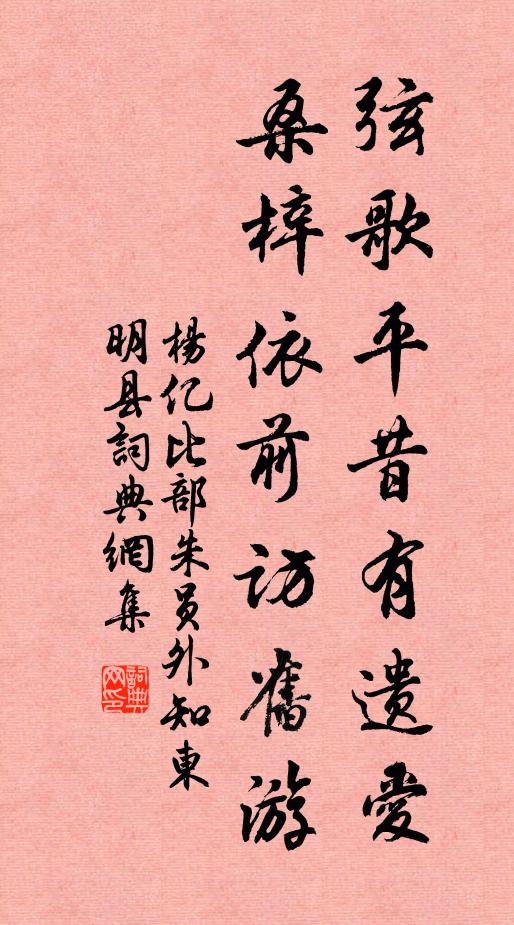 弦歌平昔有遗爱
桑梓依前访舊游
楊亿比部朱员外知東
明县詞典網集
詞典网印